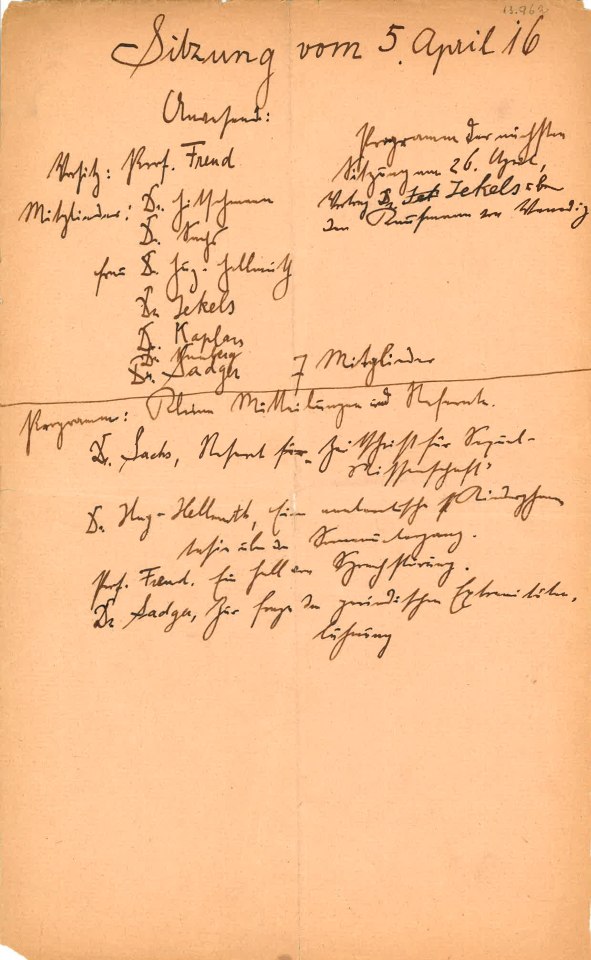 13.962
Sitzung vom 5. April 16
Anwesend:
Vorsitz: Prof. Freud
Mitglieder: Dr. Hitschmann
Dr. Sachs
Frau Dr. Hug-Hellmuth
Dr. Jekels
Dr. Kaplan
Dr. Nunberg
Dr. Sadger
7 Mitglieder
Programm der nächsten
Sitzung am 26. April,
Vortrag Dr. Jekels über
den Kaufmann von Venedig
Programm: Kleine Mitteilungen und Referate.
Dr. Sachs, Referat für Zeitschrift für Sexual-
Wissenschaft
Dr. Hug-Hellmuth, Eine amerikanische Kinderphan
tasie über den Sonnenuntergang.
Prof. Freud. Ein Fall von Sprachstörung.
Dr. Sadger, Zur Frage der periodischen Extremitäten,
lähmung